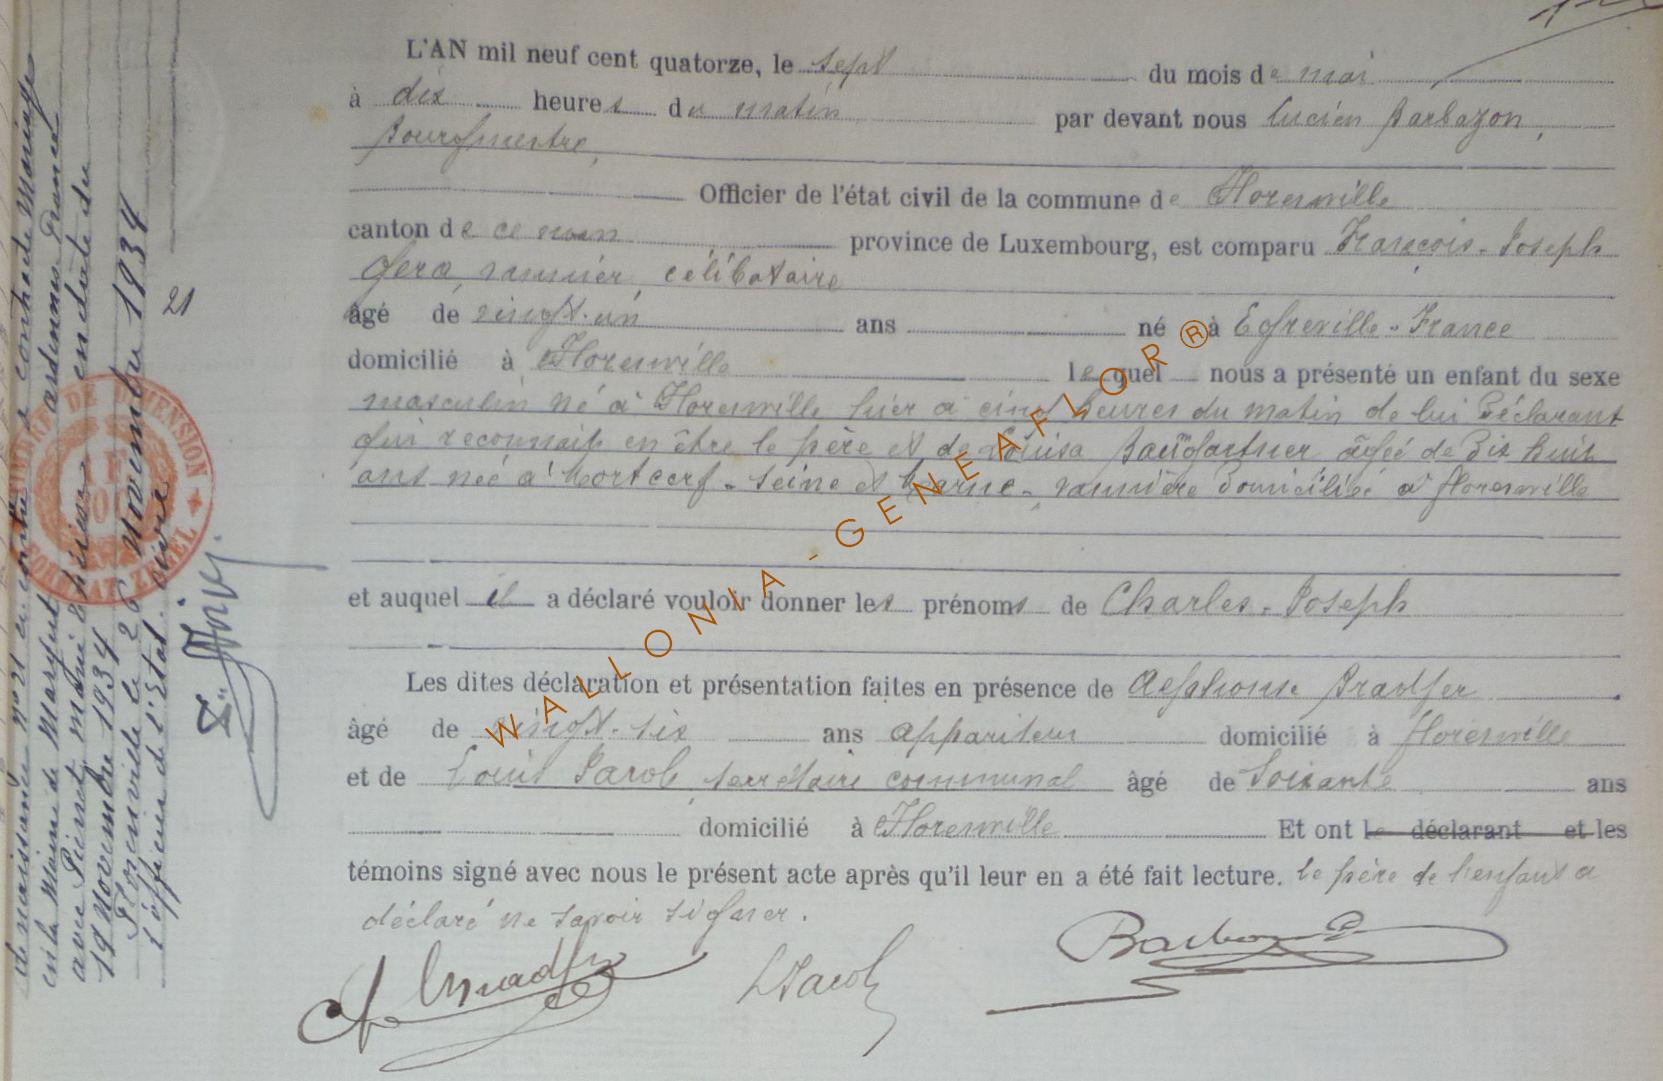 L'AN mil neuf cent quatorze, le sept du mois de mai
à dix heures du matin par devant nous Lucien Barbazon,
Bourgmestre,
Officier de l'état civil de la commune de Florenville
canton de ce nom province de Luxembourg, est comparu François-Joseph
vannier, célibataire
âgé de vingt-un ans né à Egreville-France
domicilié à Florenville lequel nous a présenté un enfant du sexe
masculin né à Florenville hier à cinq heures du matin de lui Déclarant
qui reconnait en être le père et de Louisa agée de Dix huit
ans née à Mortcerf-Seine et Marne-, vannière Domiciliée à Florenville
et auquel il a déclaré vouloir donner les prénoms de Charles-Joseph
Les dites déclaration et présentation faites en présence de Alphonse Bradfer
âgé de vingt-six ans appariteur domicilié à Florenville
et de Louis Jacob, secrétaire communal âgé de Soixante ans
domicilié à Florenville Et ont le déclarant et les
témoins signé avec nous le présent acte après qu'il leur en a été fait lecture. Le père de l'enfant a
déclaré ne savoir signer.
A Bradfer LJacob Barbazon
21
de naissance n° 21 a contracté Mariage
en la Mairie de Ardennes France
avec en date du
19 Novembre 1934
Florenville le 26 Novembre 1934
L'officier de l'Etat civil
TIMBRE DE DIMENSION
FORMAAT ZEGEL
WALLONIA-GENEAFLOR®